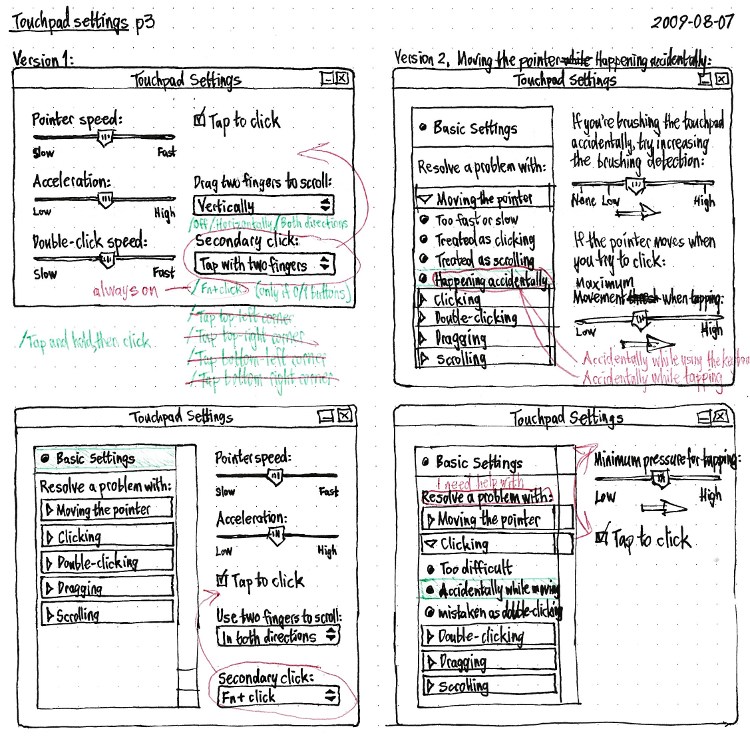 Touchpad settings p3
2009-08-07
Version 1:
Touchpad Settings
Pointer speed:
Slow Fast
Tap to click
Acceleration:
Low High
Drag two fingers to scroll:
Vertically
/Off/Horizontally/Both directions
Double-click speed:
Slow Fast
Secondary click:
Tap with two fingers
always on
/Fn+click (only if 0/1 buttons)
/Tap top left corner
/Tap top right corner
/Tap bottom left corner
/Tap bottom right corner
/Tap and hold, then click
Version 2, Moving the pointer while Happening accidentally:
Touchpad Settings
Basic Settings
Resolve a problem with:
Moving the pointer
Too fast or slow
Treated as clicking
Treated as scrolling
Happening accidentally
Clicking
Double-clicking
Dragging
Scrolling
If you're brushing the touchpad
accidentally, try increasing
the brushing detection:
None Low High
If the pointer moves when
you try to click:
Maximum
Movement when tapping:
Low High
Accidentally while using the keyboard
Accidentally while tapping
Touchpad Settings
Basic Settings
Resolve a problem with:
Moving the pointer
Clicking
Double-clicking
Dragging
Scrolling
Pointer speed:
Slow Fast
Acceleration:
Low High
Tap to click
Use two fingers to scroll:
In both directions
Secondary click:
Fn+ click
Touchpad Settings
Basic Settings
I need help with
Resolve a problem with:
Moving the pointer
Clicking
Too difficult
Accidentally while moving
mistaken as double-clicking
Double-clicking
Dragging
Scrolling
Minimum pressure for tapping:
Low High
Tap to click